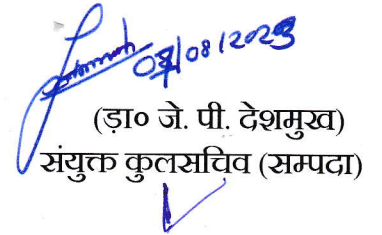 08/2023
(ड़ा० जे. पी. देशमुख)
संयुक्त कुलसचिव (सम्पदा)